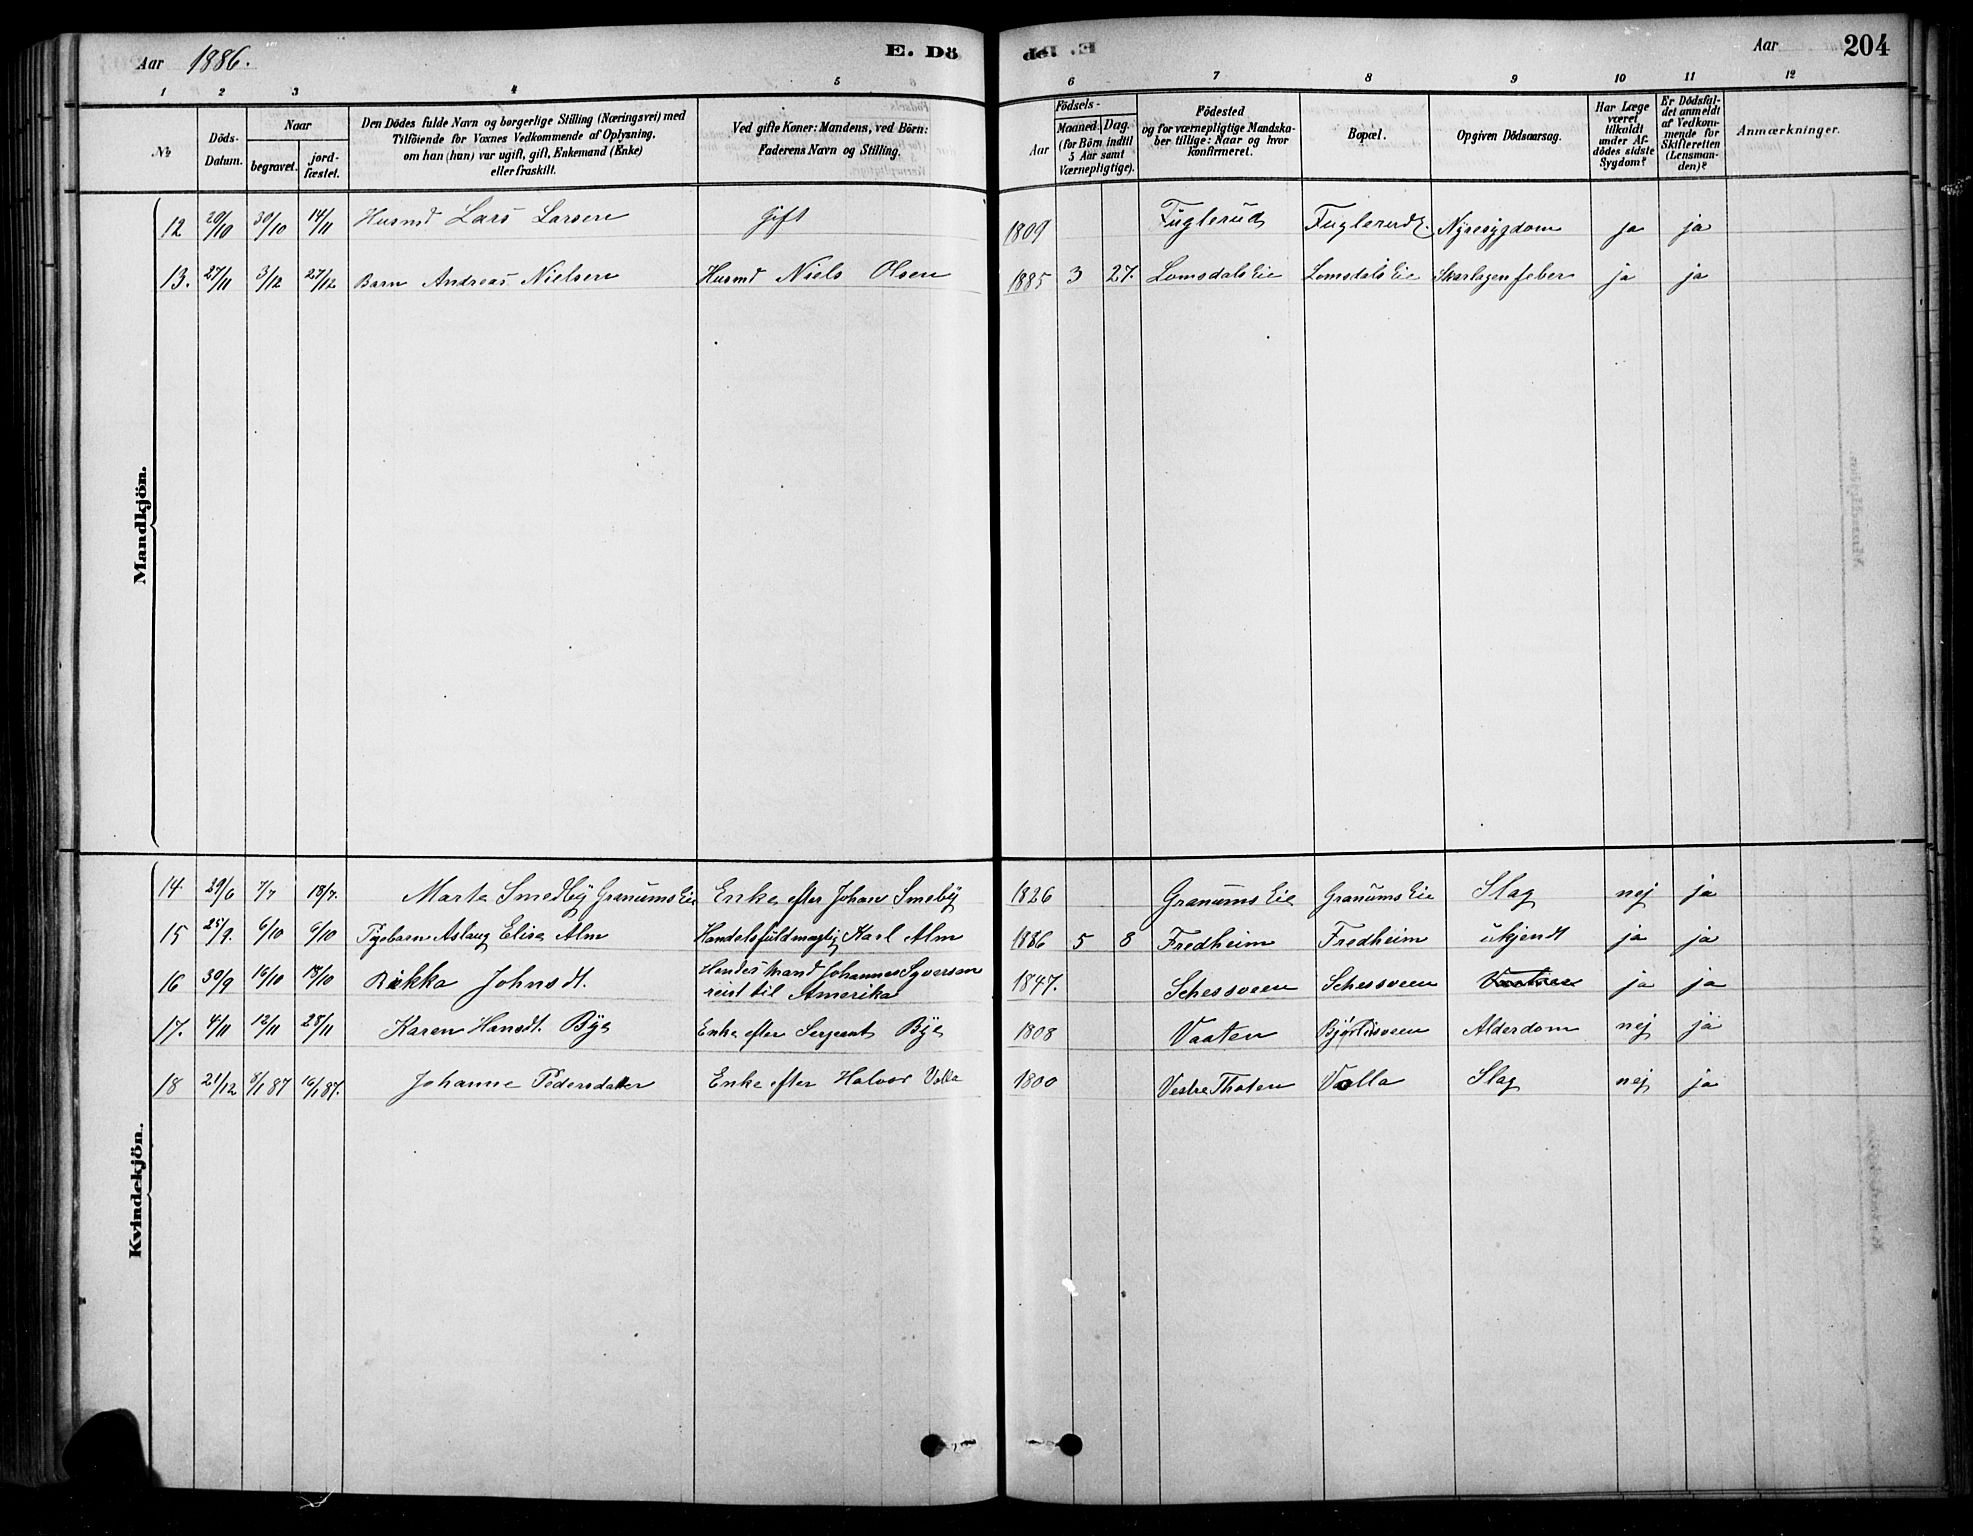 Aar 1886.
E. Dö
de.
Aar
204
1 2 3 4 5 6 7 8 9 10 11 12
№
Döds-Datum.
Naar
begravet.
jord-fæstet.
Den Dödes fulde Navn og borgerlige Stilling (Næringsvei) med
Tilföiende for Voxnes Vedkommende af Oplysning.
om han (hun) var ugift, gift, Enkemand (Enke)
eller fraskilt.
Ved gifte Koner: Mandens, ved Börn:
Faderens Navn og Stilling.
Födsels-
Aar
Maaned. Dag.
(for Börn indtil
5 Aar samt
Værnepligtige).
Födested
og for værnepligtige Mandska-
ber tillige: Naar og hvor
konfirmeret.
Bopæl.
Opgiven Dödsaarsag.
Har Læge
været
tilkaldt
under Af-
dödes sidste
Sygdom?
Er Dödsfal-
det anmeldt
af Vedkom-
mende for
Skifteretten
(Lensman-
den)?
Anmærkninger.
Mandkjön.
12 20/10 30/10 14/11 Husmd Lars Larsen gift 1809 Fuglerud Fuglerude. Nyresygdom ja ja
13. 27/11 3/12 27/12 Barn Andreas Nielsen Husmd Niels Olsen 1885 3 27. Lomsdals Eie Lomsdals Eie Skarlagensfeber ja ja
Kvindekjön.
14 29/6 7/7 18/7. Marte Smedby Granums Eie Enke efter Johan Smeby 1826 Granums Eie Granums Eie Slag nej ja
15 25/9. 6/10 6/10 Pigebarn Aslaug Elise Alm Handelsfuldmægtig Karl Alm 1886 5 8 Fredheim Fredheim ukjendt ja ja
16 30/9 16/10 18/10 Rikka Johnsdt. Hendes Mand Johannes Syversen
reist til Amerika 1847. Schesveen Schesveen ja ja
17. 4/11 12/11 28/11 Karen Hansdt. Bye Enke efter Sergeant Bye 1808 Vaaten Alderdom nej ja
18 21/12 8/1 87 16/1 87. Johanne Pedersdatter Enke efter Halvor Valla 1800 Vestre Thoten Valla Slag nej ja